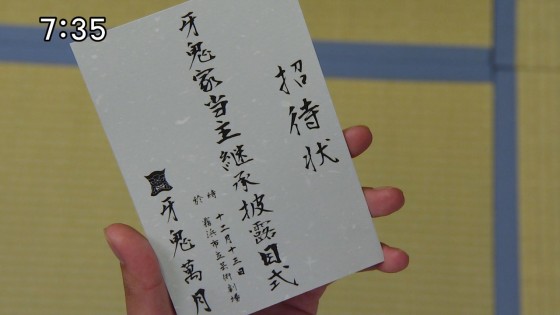 7:35
招待状
牙鬼家当主継承披露目式
時 十二月十三日
於 浜市立芸術劇場
牙鬼萬月